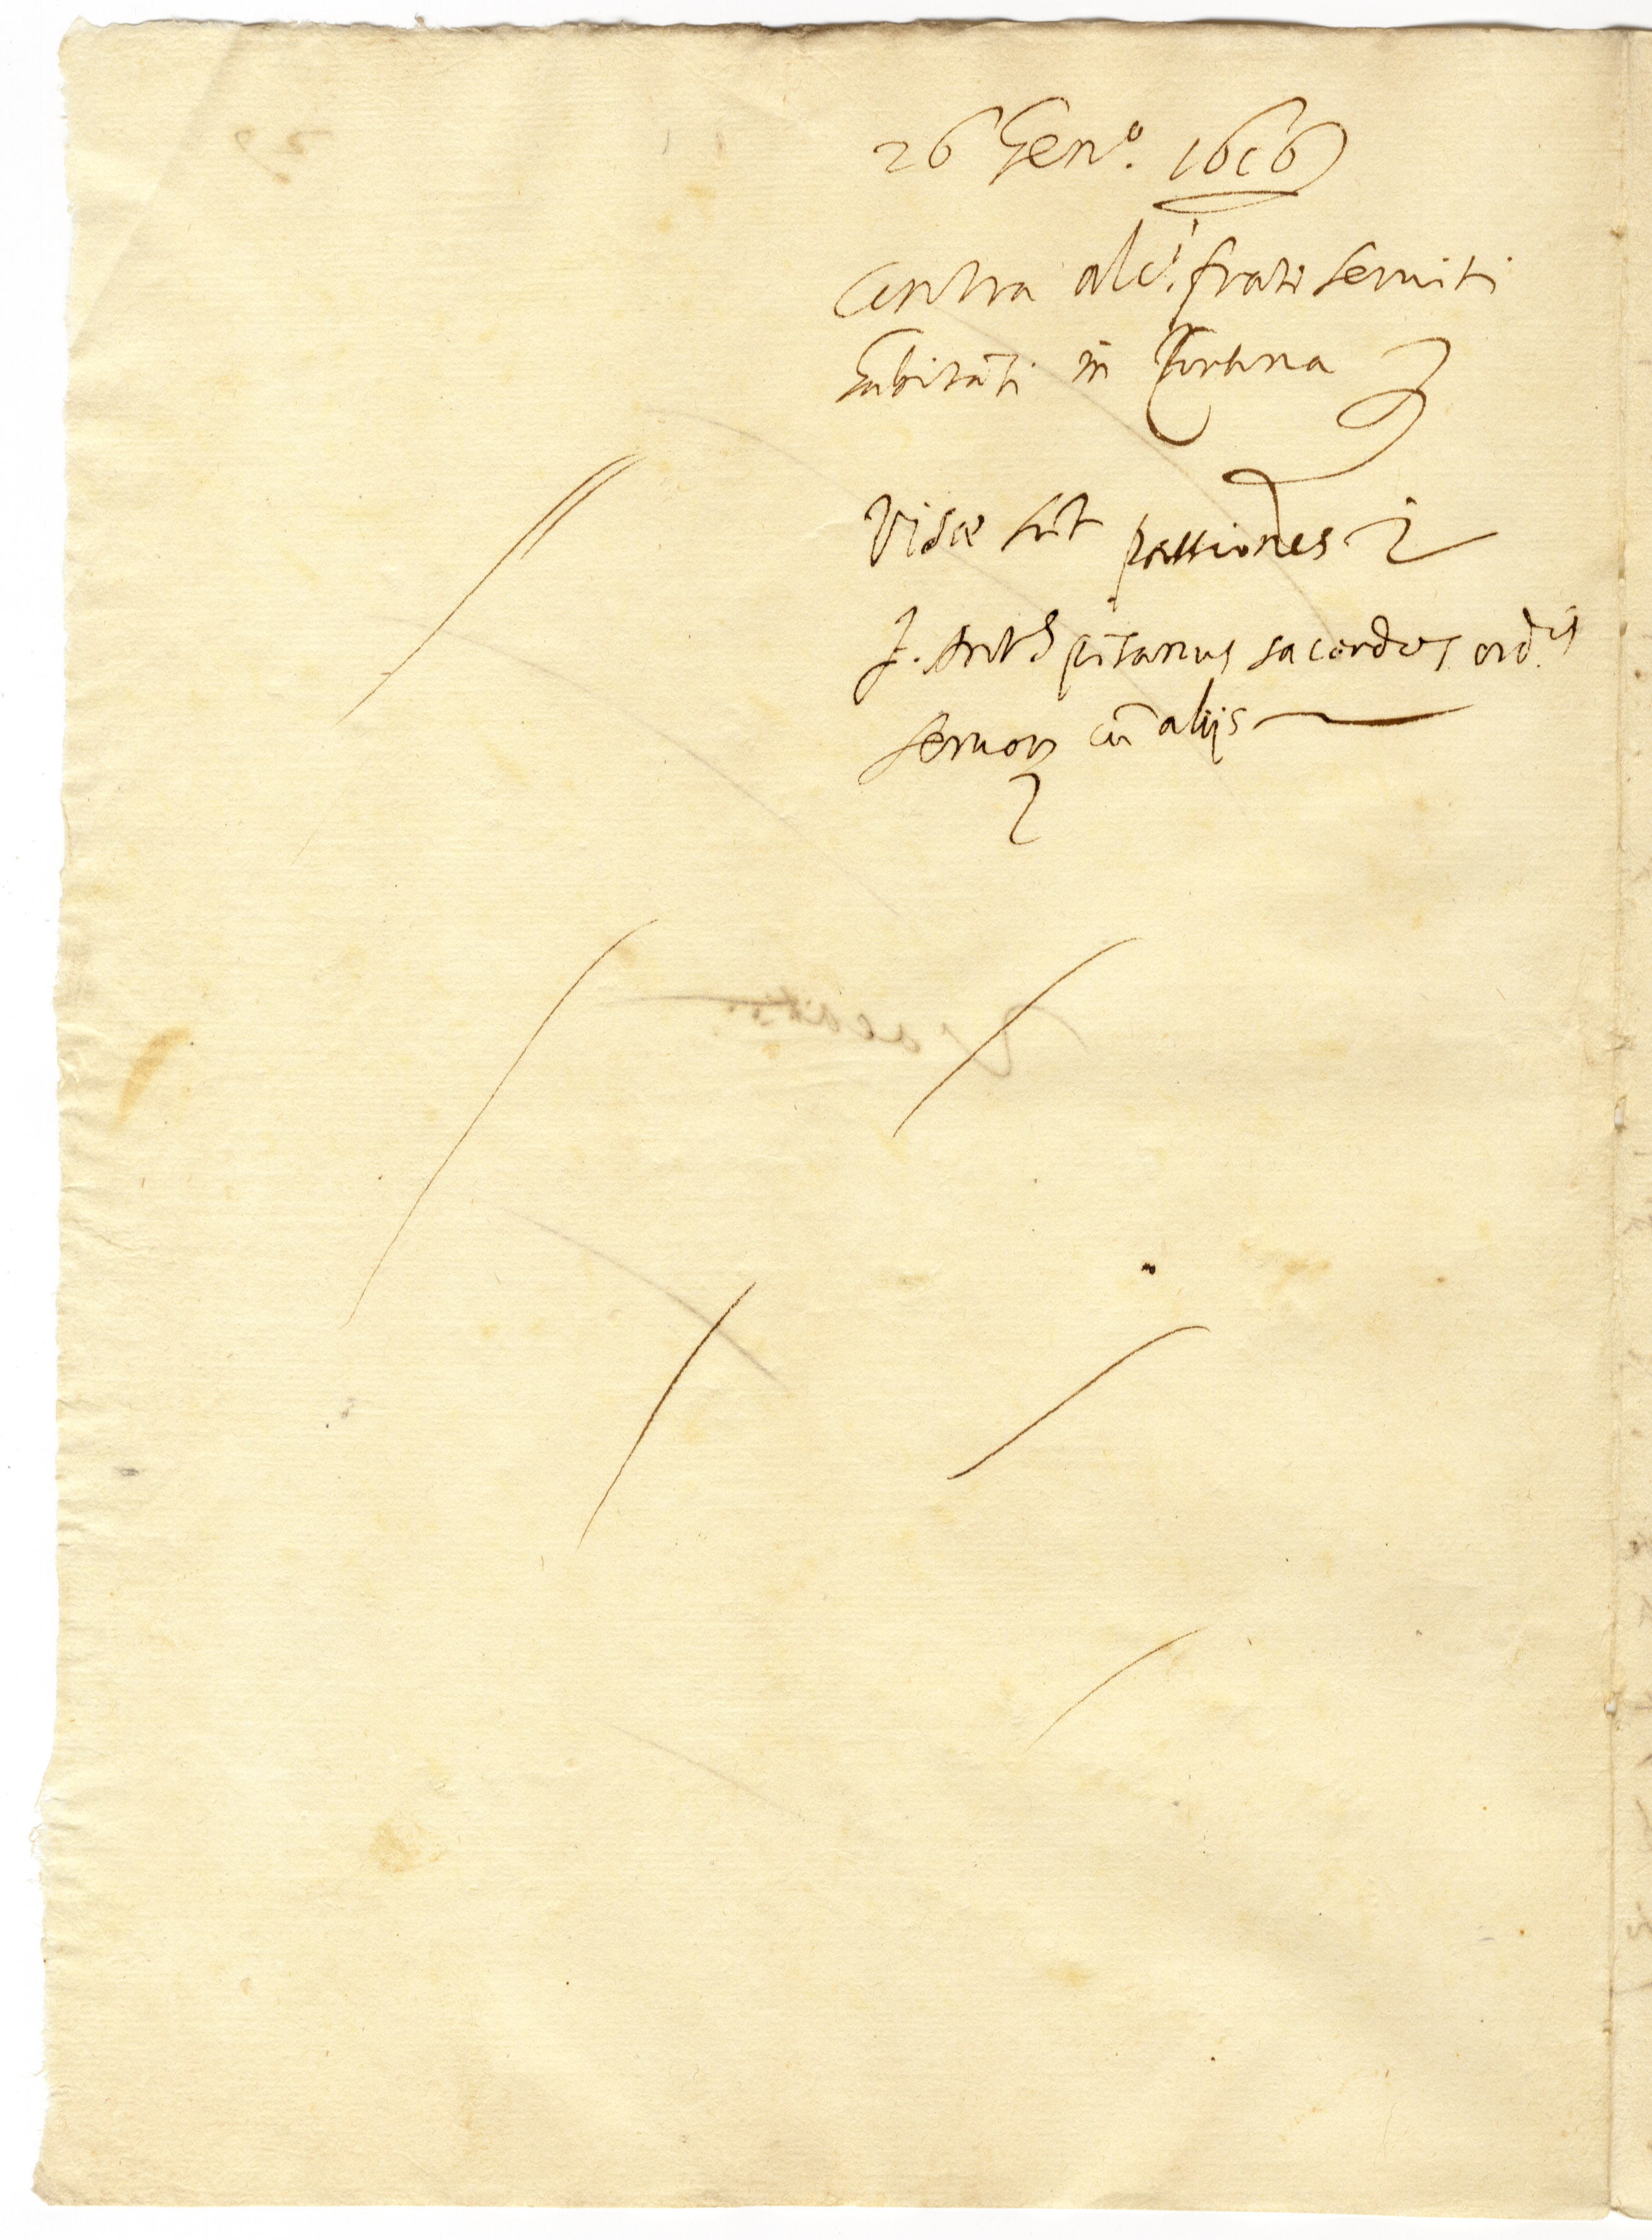 26 Genº. 1616
Contra alc.i frati seruiti
habitāti in Cortona
Visæ sūt passiones
F. Ant.s pisanus sacerdos ord.is
seruorū cū alijs